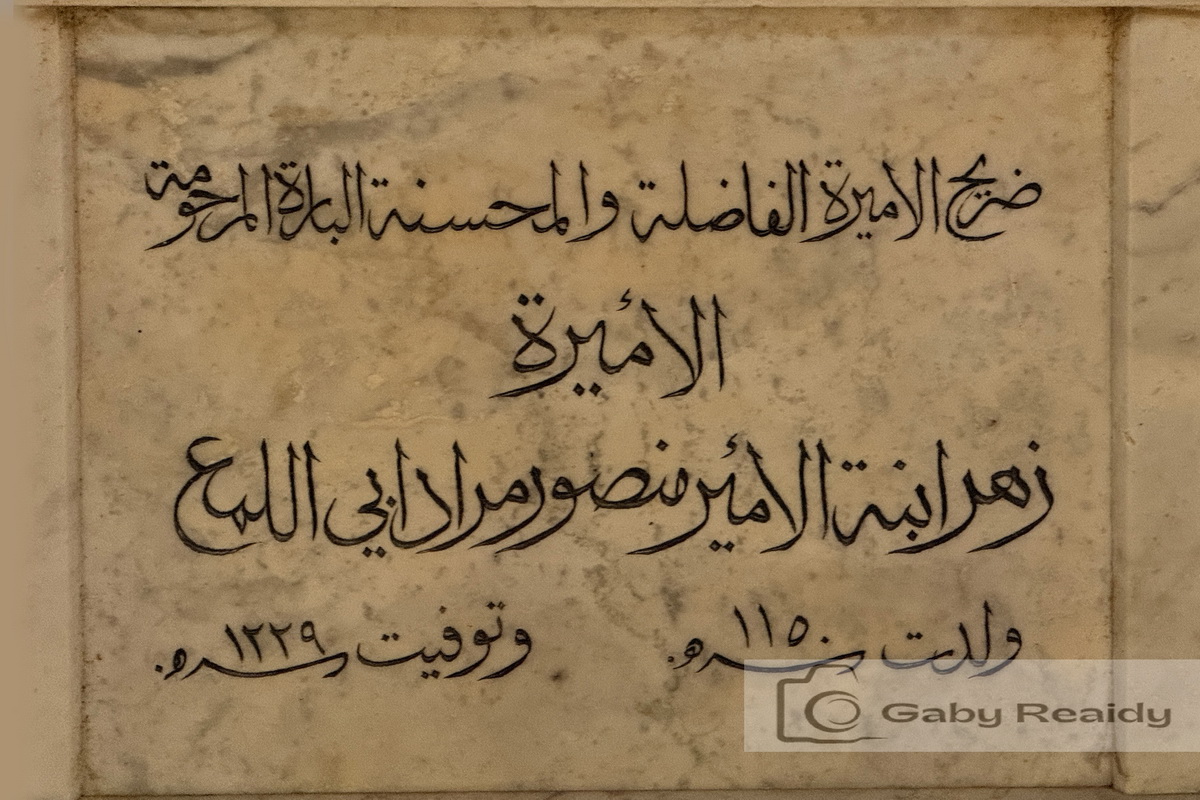 ضريح الاميرة الفاضلة والمحسنة البارة المرحومة
الأميرة
زهر ابنة الأمير منصور مراد ابي اللمع
ولدت سنة ١١٥٠ هـ. وتوفيت سنة ١٢٢٩ هـ.
Gaby Reaidy